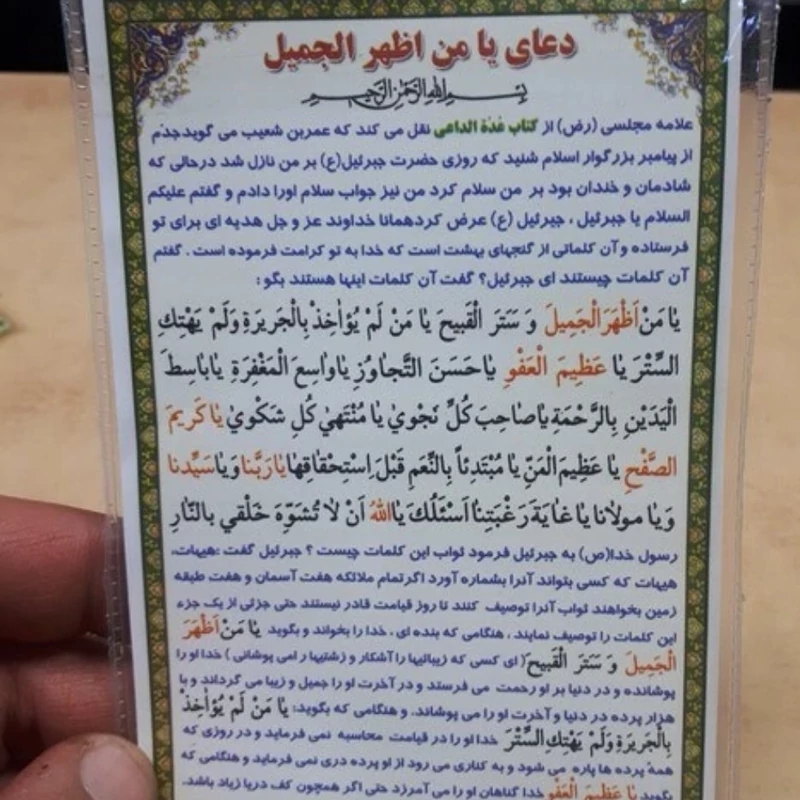 دعای یا من اظهر الجمیل
بسم الله الرحمن الرحیم
علامه مجلسی (رض) از کتاب عُدَة الداعی نقل می کند که عمربن شعیب می گویدجدّم
از پیامبر بزرگوار اسلام شنید که روزی حضرت جبرئیل(ع) بر من نازل شد درحالی که
شادمان و خندان بود بر من سلام کرد من نیز جواب سلام اورا دادم و گفتم علیکم
السلام یا جبرئیل ، جبرئیل (ع) عرض کردهمانا خداوند عز و جل هدیه ای برای تو
فرستاده وآن کلماتی از گنجهای بهشت است که خدا به تو کرامت فرموده است . گفتم
آن کلمات چیستند ای جبرئیل؟ گفت آن کلمات اینها هستند بگو :
یٰا مَنْ اَظْهَرَ الْجَمیلَ وَ سَتَرَ الْقَبیحَ یٰا مَنْ لَمْ یُؤٰاخِذْ بِالْجَریرَةِ وَلَمْ یَهْتِكِ
السِّتْرَ یٰا عَظیمَ الْعَفْوِ یٰاحَسَنَ التَّجٰاوُزِ یٰاوٰاسِعَ الْمَغْفِرَةِ یٰابٰاسِطَ
الْیَدَیْنِ بِالرَّحْمَةِ یٰاصٰاحِبَ کُلِّ نَجْویٰ یٰا مُنْتَهیٰ کُلِ شَکْویٰ یٰا کَریمَ
الصَّفْحِ یٰا عَظیمَ الْمَنِّ یٰا مُبْتَدِئاً بِالنِّعَمِ قَبْلَ اِسْتِحْقٰاقِهٰا یٰارَبَّنٰا وَیٰا سَیِّدنٰا
وَیٰا مولٰانٰا یٰا غٰایَةَ رَغْبَتِنٰا اَسْئَلُكَ یٰا اَللهُ اَنْ لٰا تُشَوِّهَ خَلْقی بِالنّٰارِ
رسول خدا(ص) به جبرئیل فرمود ثواب این کلمات چیست ؟ جبرئیل گفت :هیهات،
هیهات که کسی بتواند آنرا بشماره آورد اگرتمام ملائکه هفت آسمان و هفت طبقه
زمین بخواهند ثواب آنرا توصیف کنند تا روز قیامت قادر نیستند حتی جزئی از یک جزء
این کلمات را توصیف نمایند ، هنگامی که بنده ای ، خدا را بخواند و بگوید یٰا مَنْ اَظْهَرَ
الْجَمیلَ وَ سَتَرَ الْقَبیحَ( ای کسی که زیبائیها را آشکار و زشتیها را می پوشانی ) خدا او را
پوشانده و در دنیا بر او رحمت می فرستد و در آخرت او را جمیل و زیبا می گرداند و با
هزار پرده در دنیا و آخرت او را می پوشاند. و هنگامی که بگوید: یٰا مَنْ لَمْ یُؤٰاخِذْ
بِالْجَریرَةِ وَلَمْ یَهْتِكِ السِّتْرَ خدا او را در قیامت محاسبه نمی فرماید و در روزی که
همهٔ پرده ها پاره می شود و به کناری می رود از او پرده دری نمی فرماید و هنگامی که
بگوید یٰا عَظیمَ الْعَفْوِ خدا گناهان او را می آمرزد حتی اگر همچون کف دریا زیاد باشد.